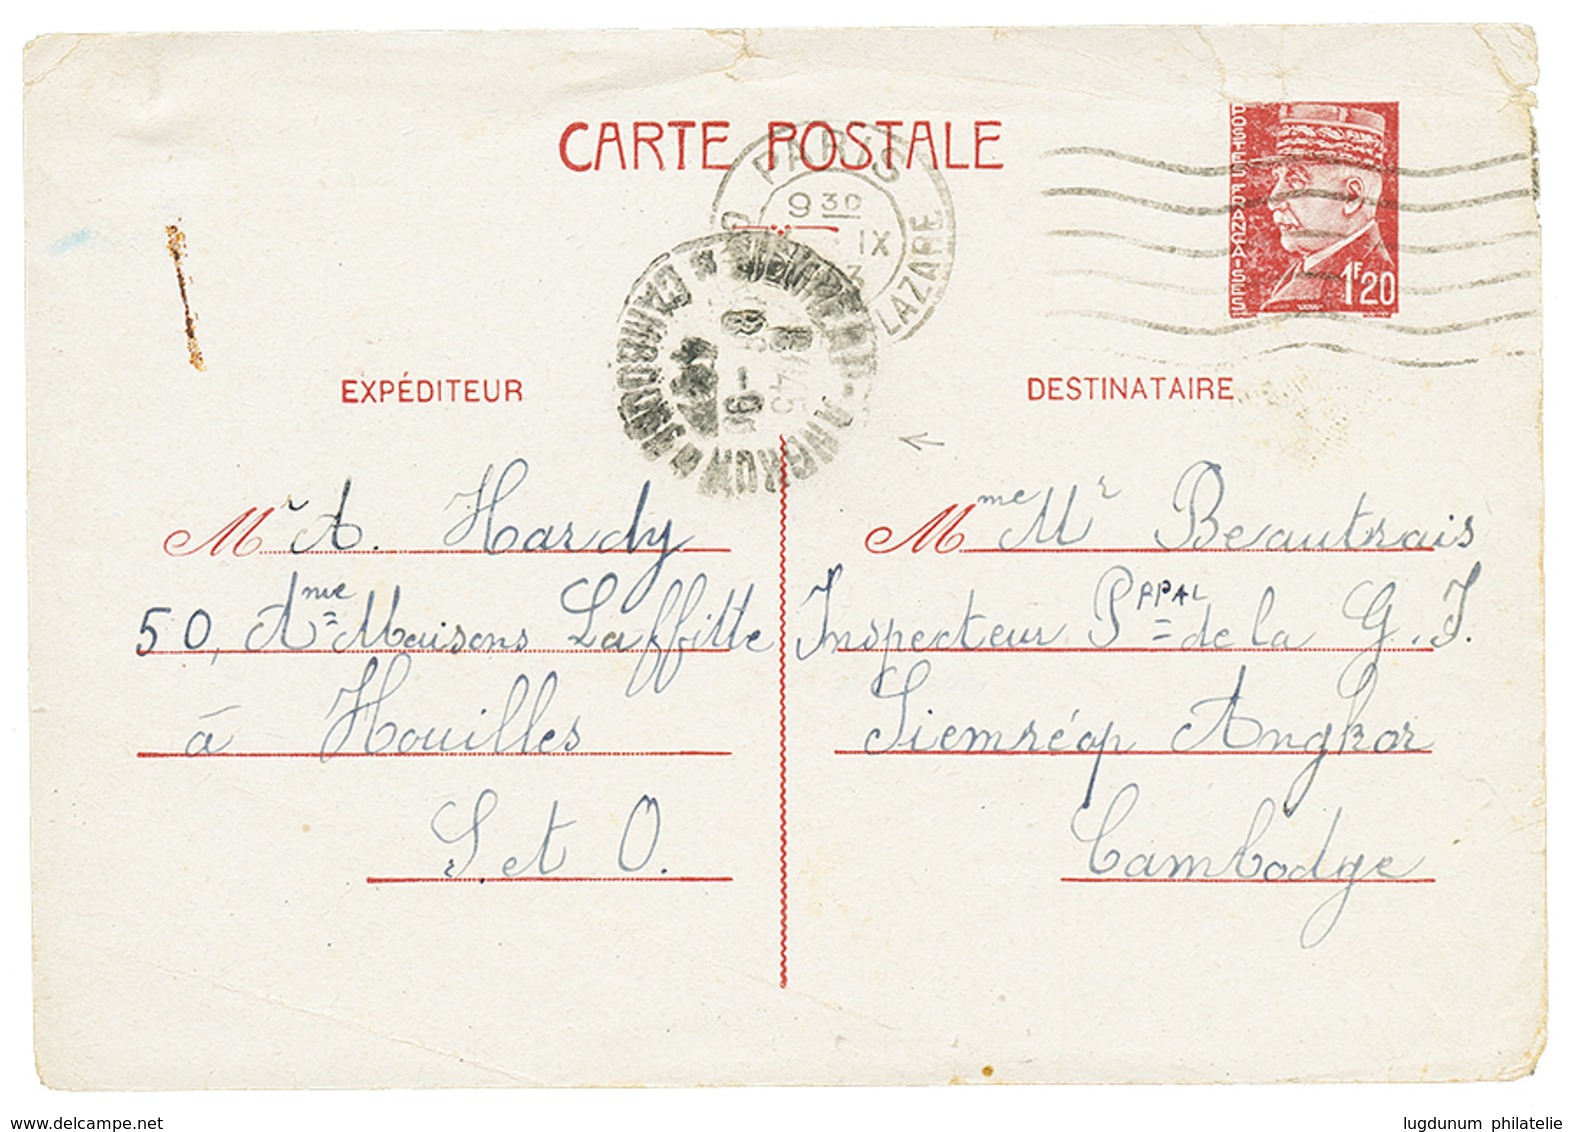 CARTE POSTALE
POSTES FRANÇAISES
1F20
PARIS
9 30
IX
LAZARE
SIEMREAP-ANGKOR
CAMBODGE
EXPÉDITEUR
Mr A. Hardy
50, Ame Maisons Laffitte
à Houilles
S. et O.
DESTINATAIRE
Mme Mr Beautrais
Inspecteur Ppal de la G. I.
Siemréap Angkor
Cambodge
www.delcampe.net
lugdunum philatelie